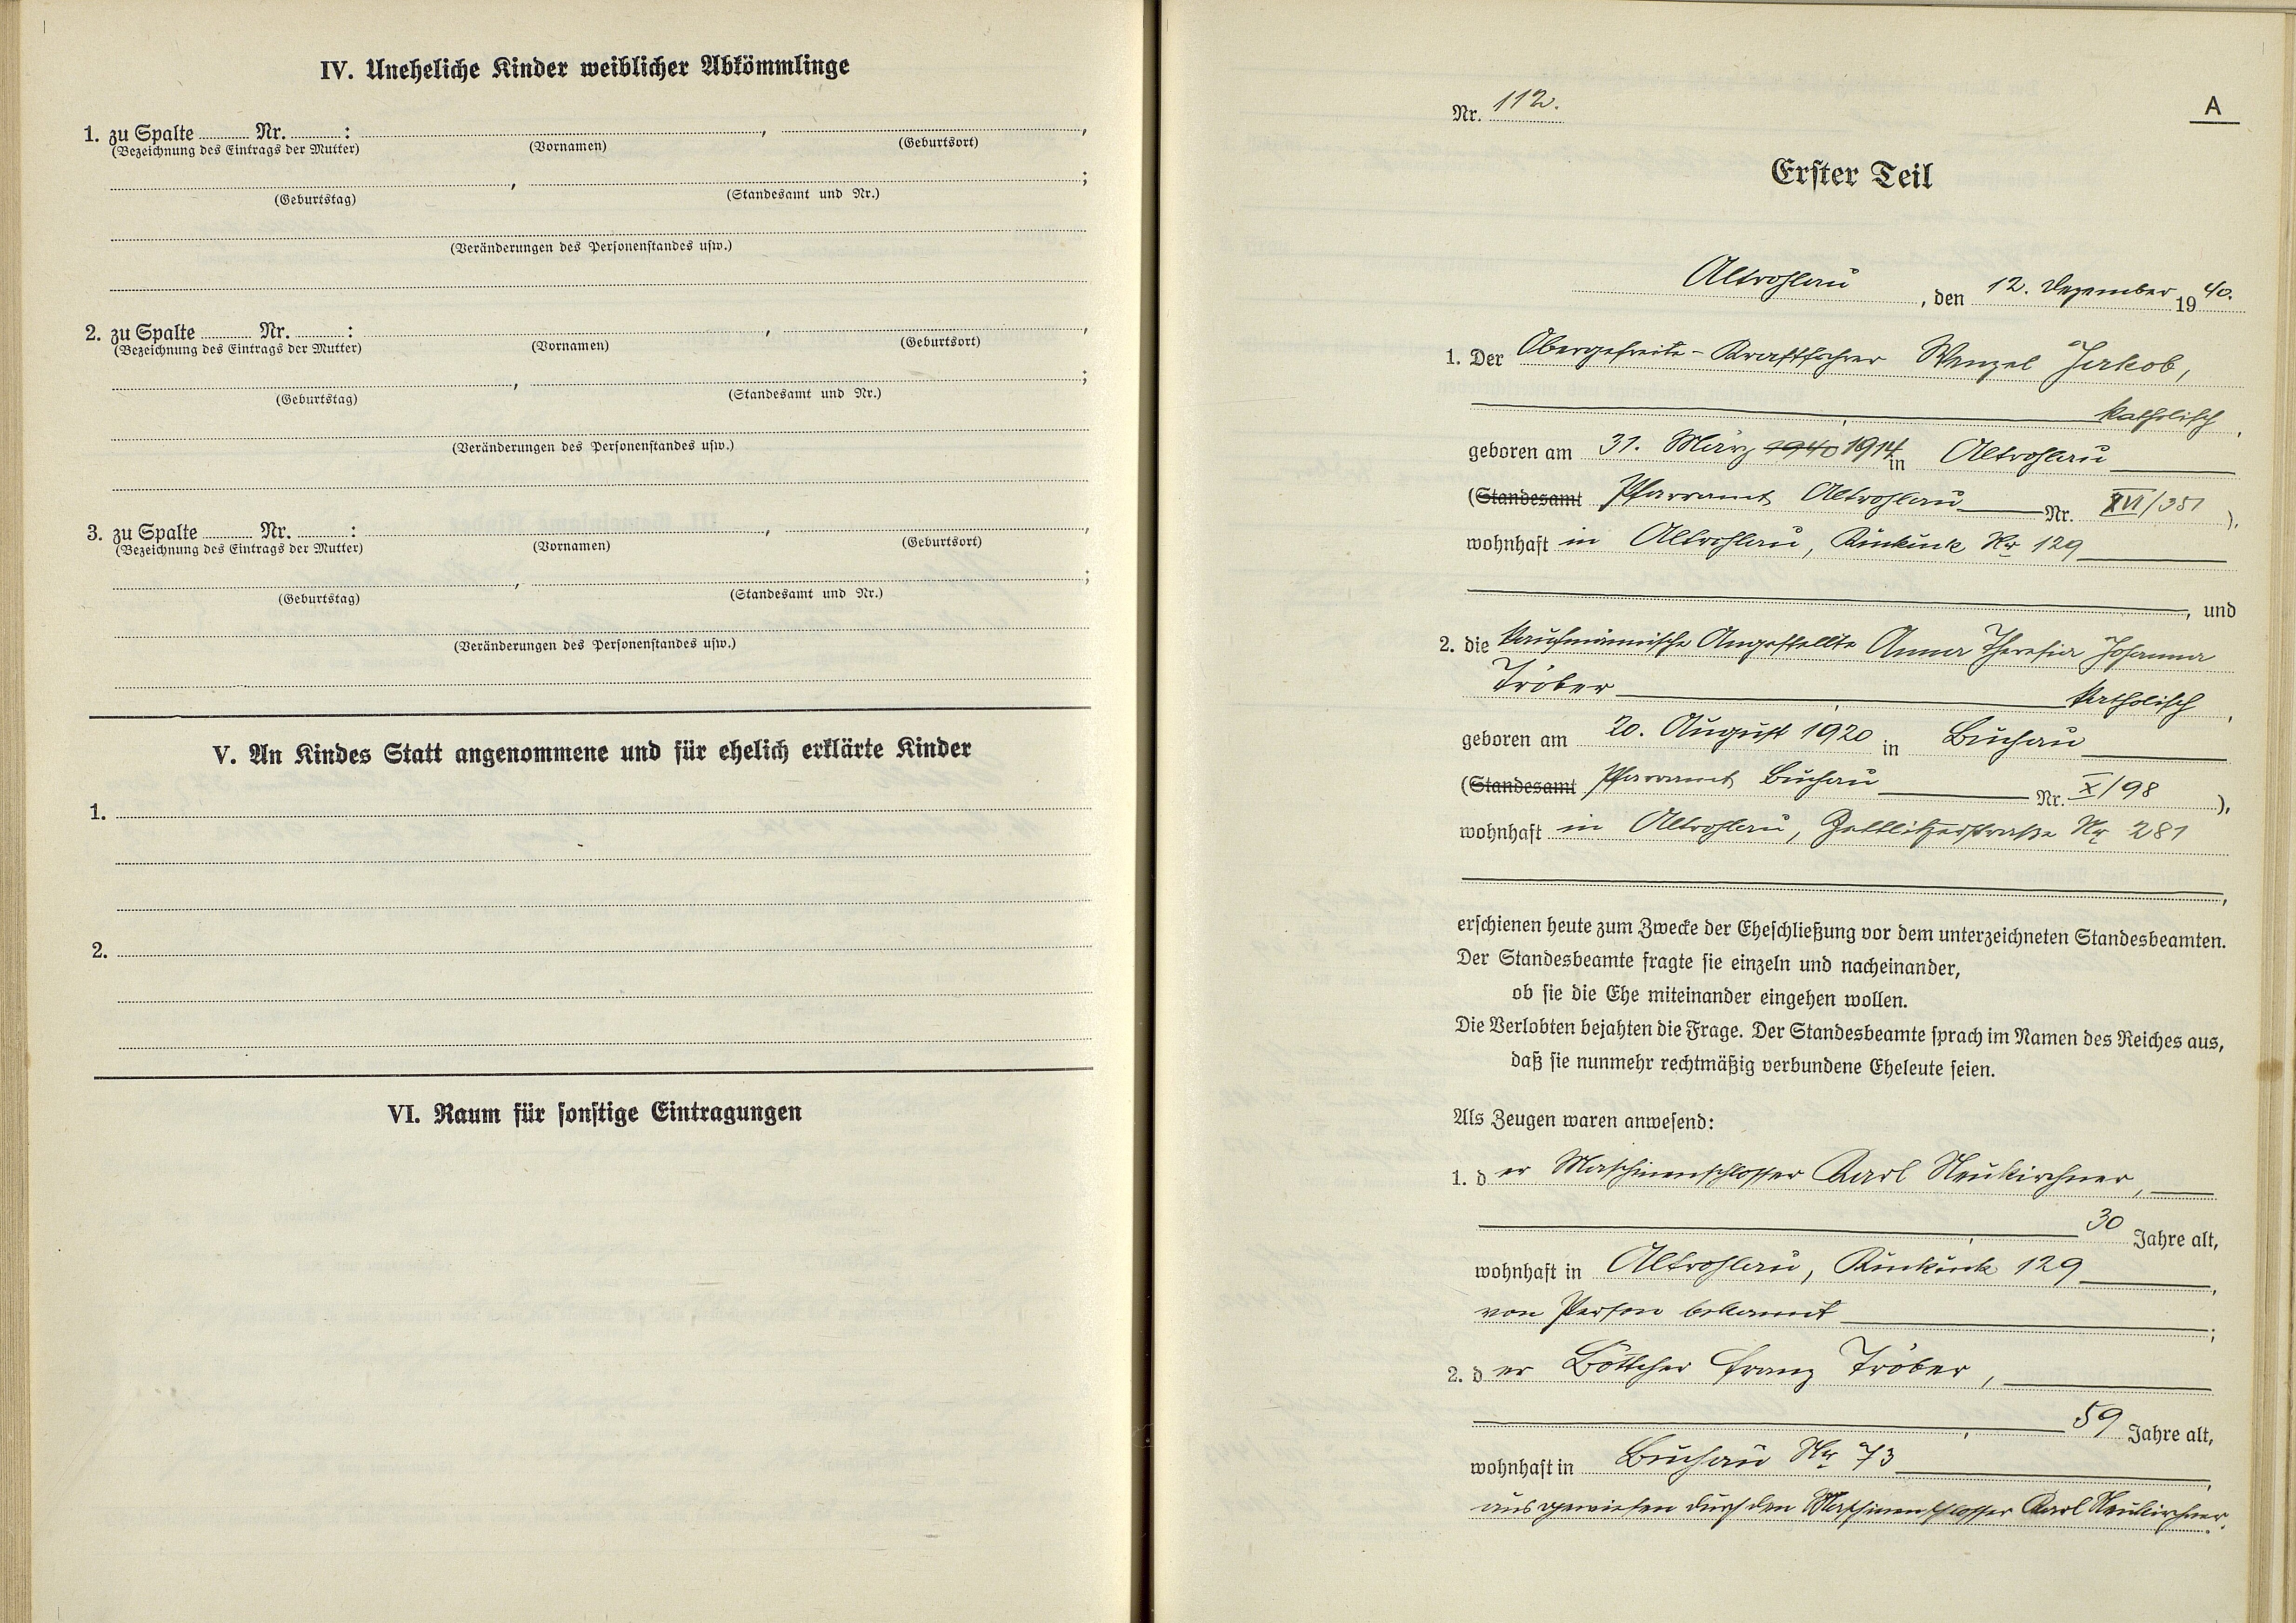 IV. Uneheliche Kinder weiblicher Abkömmlinge
1. zu Spalte Nr. : , ,
(Bezeichnung des Eintrags der Mutter) (Vornamen) (Geburtsort)
, ;
(Geburtstag) (Standesamt und Nr.)
(Veränderungen des Personenstandes usw.)
2. zu Spalte Nr. : , ,
(Bezeichnung des Eintrags der Mutter) (Vornamen) (Geburtsort)
, ;
(Geburtstag) (Standesamt und Nr.)
(Veränderungen des Personenstandes usw.)
3. zu Spalte Nr. : , ,
(Bezeichnung des Eintrags der Mutter) (Vornamen) (Geburtsort)
, ;
(Geburtstag) (Standesamt und Nr.)
(Veränderungen des Personenstandes usw.)
V. An Kindes Statt angenommene und für ehelich erklärte Kinder
1.
2.
VI. Raum für sonstige Eintragungen
Nr. 112.
A
Erster Teil
Altrohlau, den 12. Dezember 1940.
1. Der Obergefreite-Kraftfahrer Wenzel Jakob,
katholisch,
geboren am 31. März 1940 1914 in Altrohlau
(Standesamt Pfarramt Altrohlau Nr. XVI/351),
wohnhaft in Altrohlau, Kuckuck Nr 129
, und
2. die kaufmännische Angestellte Anna Theresia Johanna
Tröber katholisch,
geboren am 20. August 1920 in Buchau
(Standesamt Pfarramt Buchau Nr. X/98),
wohnhaft in Altrohlau, Zettlitzerstraße Nr 281
,
erschienen heute zum Zwecke der Eheschließung vor dem unterzeichneten Standesbeamten.
Der Standesbeamte fragte sie einzeln und nacheinander,
ob sie die Ehe miteinander eingehen wollen.
Die Verlobten bejahten die Frage. Der Standesbeamte sprach im Namen des Reiches aus,
daß sie nunmehr rechtmäßig verbundene Eheleute seien.
Als Zeugen waren anwesend:
1. der Maschinenschlosser Karl Neukirchner,
30 Jahre alt,
wohnhaft in Altrohlau, Kuckuck 129,
von Person bekannt;
2. der Böttcher Franz Tröber,
59 Jahre alt,
wohnhaft in Buchau Nr 73,
ausgewiesen durch den Maschinenschlosser Karl Neukirchner.